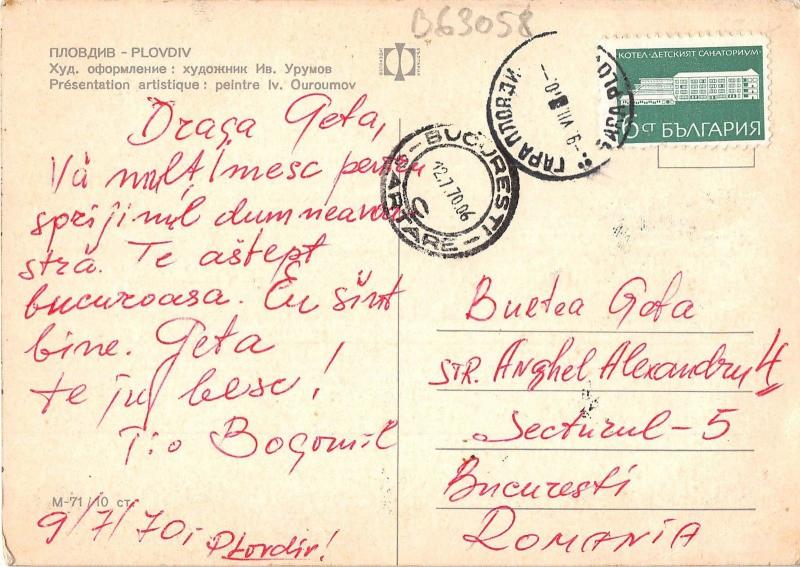 B63058
ПЛОВДИВ - PLOVDIV
Худ. оформление : художник Ив. Урумов
Présentation artistique : peintre Iv. Ouroumov
КОТЕЛ-ДЕТСКИЯТ САНАТОРИУМ
СТ БЪЛГАРИЯ
ГАРА ПЛОВДИВ
BUCURESTI
12.7.70.06
CARTARE
Draga Geta,
Vă mulțimesc pentru
sprijinul dumneavoa
stră. Te aștept
bucuroasa. Eu sînt
bine. Geta
te iubesc!
T:o Bogomil
М-71/10 ст.
9/7/70i
Plovdiv!
Burtea Geta
STR. Anghel Alexandru 4
Secturul-5
Bucuresti
ROMANIA